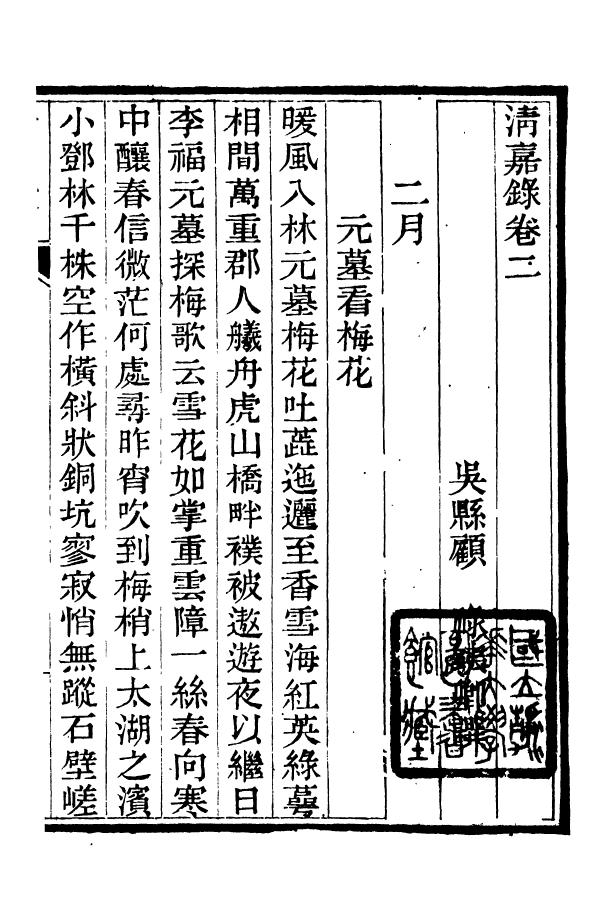 清嘉錄卷二
吳縣顧　祿
二月
元墓看梅花
暖風入林元墓梅花吐蕋迤邐至香雪海紅英綠萼
相間萬重郡人艤舟虎山橋畔襆被遨遊夜以繼日
李福元墓探梅歌云雪花如掌重雲障一絲春向寒
中釀春信微茫何處尋昨宵吹到梅梢上太湖之濱
小鄧林千株空作橫斜狀銅坑寥寂悄無蹤石壁嵯